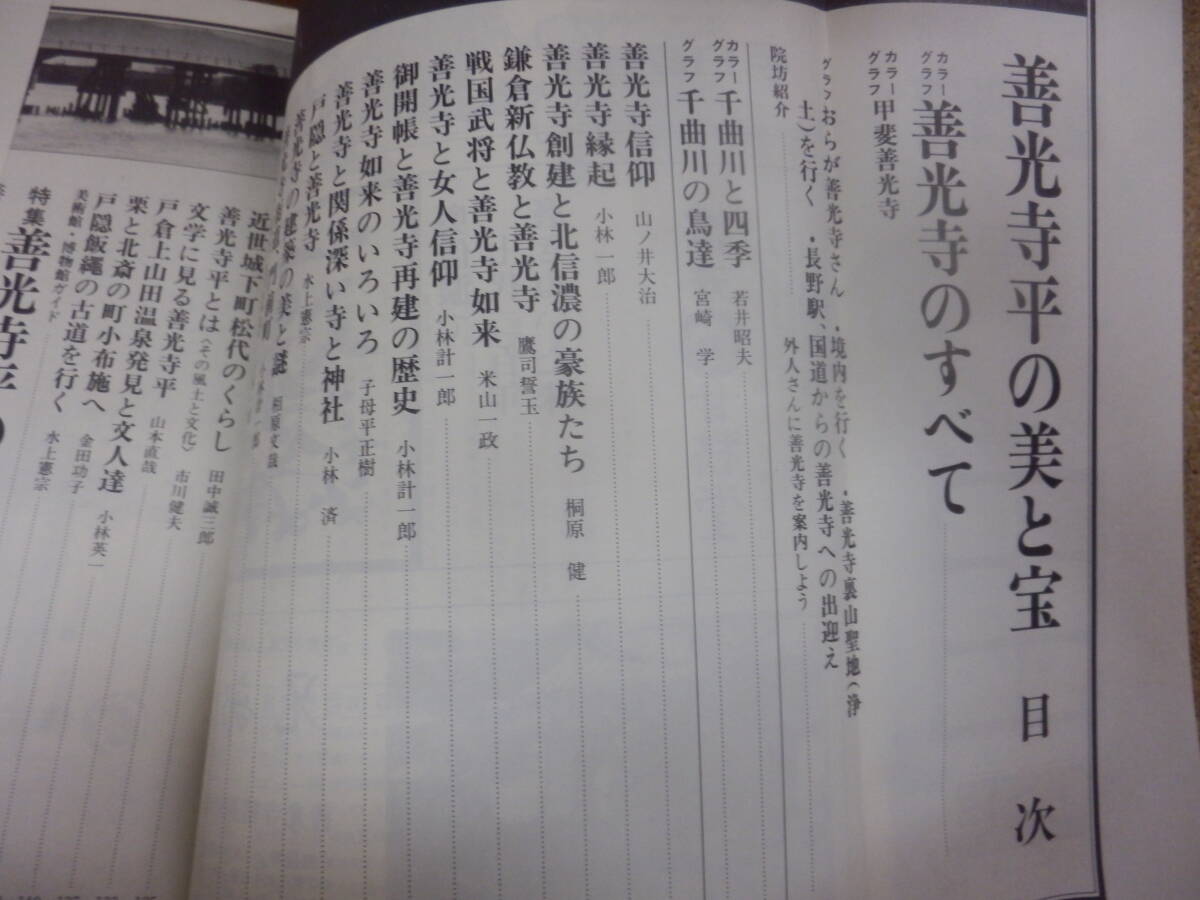 善光寺平の美と宝 目次
カラーグラフ 善光寺のすべて
カラーグラフ 甲斐善光寺
グラフ おらが善光寺さん ・境内を行く ・善光寺裏山聖地(浄
土)を行く ・長野駅、国道からの善光寺への出迎え
院坊紹介 外人さんに善光寺を案内しよう
カラーグラフ 千曲川と四季 若井昭夫
グラフ 千曲川の鳥達 宮崎 学
善光寺信仰 山ノ井大治
善光寺縁起 小林一郎
善光寺創建と北信濃の豪族たち 桐原 健
鎌倉新仏教と善光寺 鷹司誓玉
戦国武将と善光寺如来 米山一政
善光寺と女人信仰 小林計一郎
御開帳と善光寺再建の歴史 小林計一郎
善光寺如来のいろいろ 子母平正樹
善光寺と関係深い寺と神社 小林 済
戸隠と善光寺 水上憲宗
善光寺の建築の美と謎 相原文哉
近世城下町松代のくらし 田中誠三郎
善光寺平とは〈その風土と文化〉 市川健夫
文学に見る善光寺平 山本直哉
戸倉上山田温泉発見と文人達 小林英一
栗と北斎の町小布施へ 金田功子
戸隠飯縄の古道を行く 水上憲宗
美術館・博物館ガイド
特集 善光寺平の